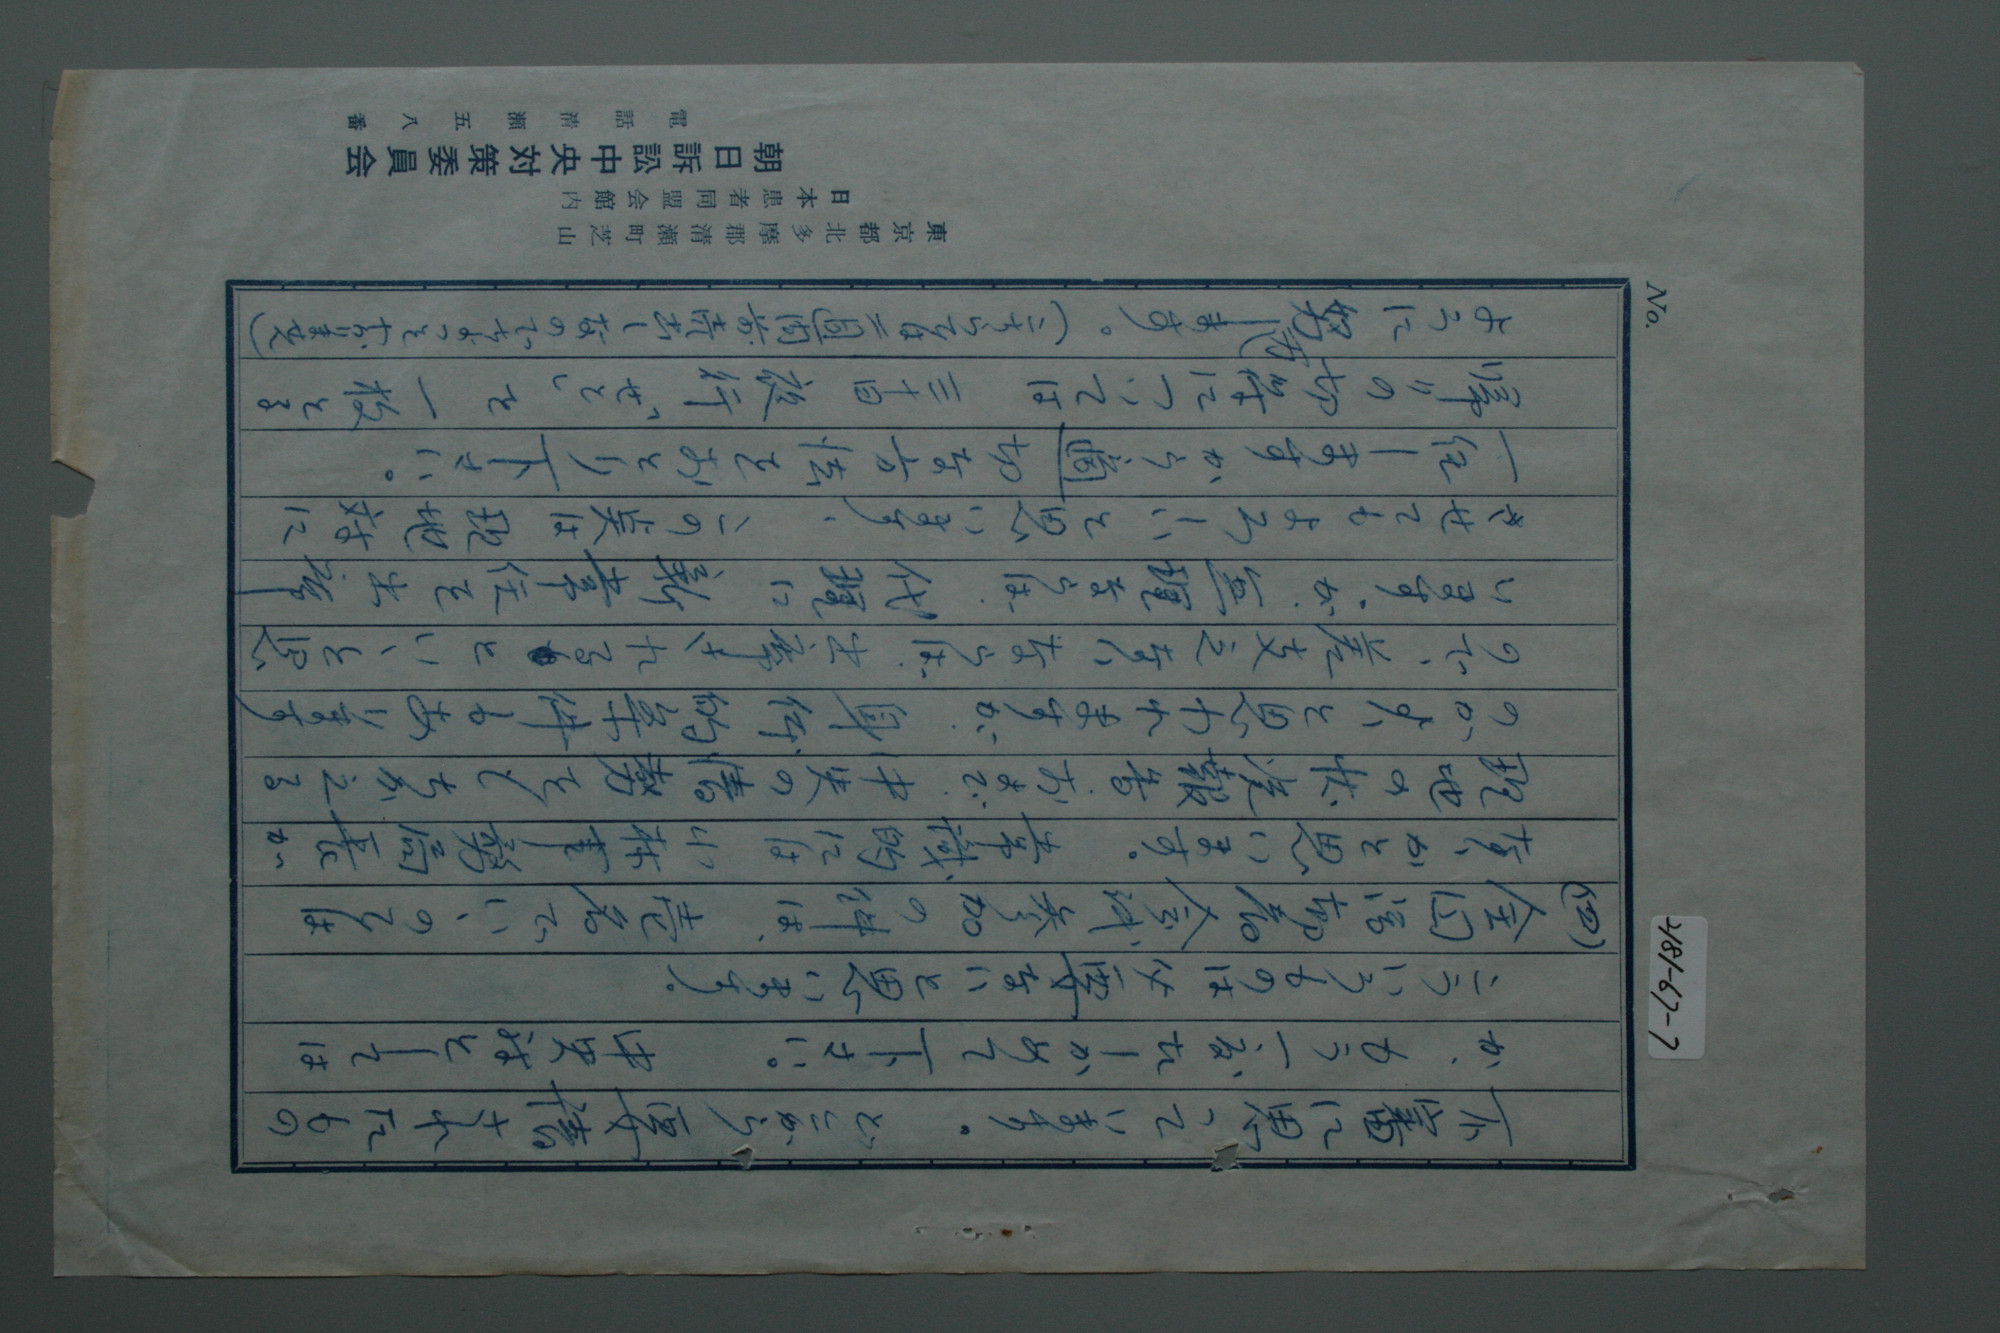 No.
481-67-7
不審に思っています。どこから要請されたもの
か、もう一度たしかめて下さい。中央対としては
こういうものは必要ないと思います。
(四) 全国活動者会議参加の件は、壱名でいいのでは
ないかと思います。常識的には小林事務局長が
現地の状況報告および中央の情勢をもちかえる
のがよいと思われますが、身体的条件もあります
ので、差支えないならば出席されるといいと思
いますが、無理ならば代理に新常任を出席
させてもよろしいと思います、この点は現地対に
一任しますから適切な方法をおとり下さい。
帰りの切符については三十日夜行「せと」を一枚とる
ように努力します。(こちらでは二週間前売出しなので
東京都北多摩郡清瀬町芝山
日本患者同盟会館内
朝日訴訟中央対策委員会
電話清瀬五八番